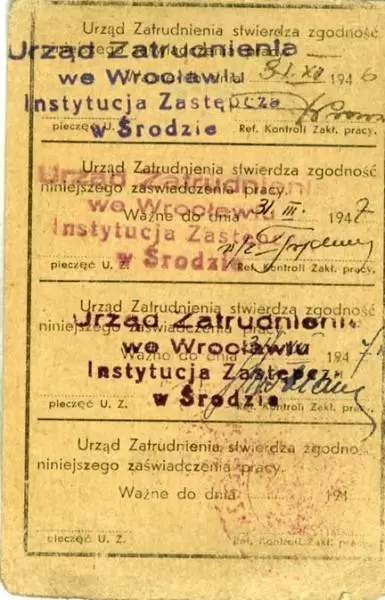 Urząd Zatrudnienia stwierdza zgodność
Urząd Zatrudnienia
we Wrocławiu
31.XII 1946
Instytucja Zastępcza
w Środzie
pieczęć U. Z.
Ref. Kontroli Zakł. pracy.
Urząd Zatrudnienia stwierdza zgodność
Urząd Zatrudnienia
niniejszego zaświadczenia pracy.
we Wrocławiu
Ważne do dnia 31 III. 1947
Instytucja Zastępcza
w Środzie
pieczęć U. Z.
Ref. Kontroli Zakł. pracy.
Urząd Zatrudnienia stwierdza zgodność
Urząd Zatrudnienia
niniejszego zaświadczenia pracy.
we Wrocławiu
Ważne do dnia 1947
Instytucja Zastępcza
w Środzie
pieczęć U. Z.
Ref. Kontroli Zakł. pracy.
Urząd Zatrudnienia stwierdza zgodność
niniejszego zaświadczenia pracy.
Ważne do dnia 194
pieczęć U. Z.
Ref. Kontroli Zakł. pracy.